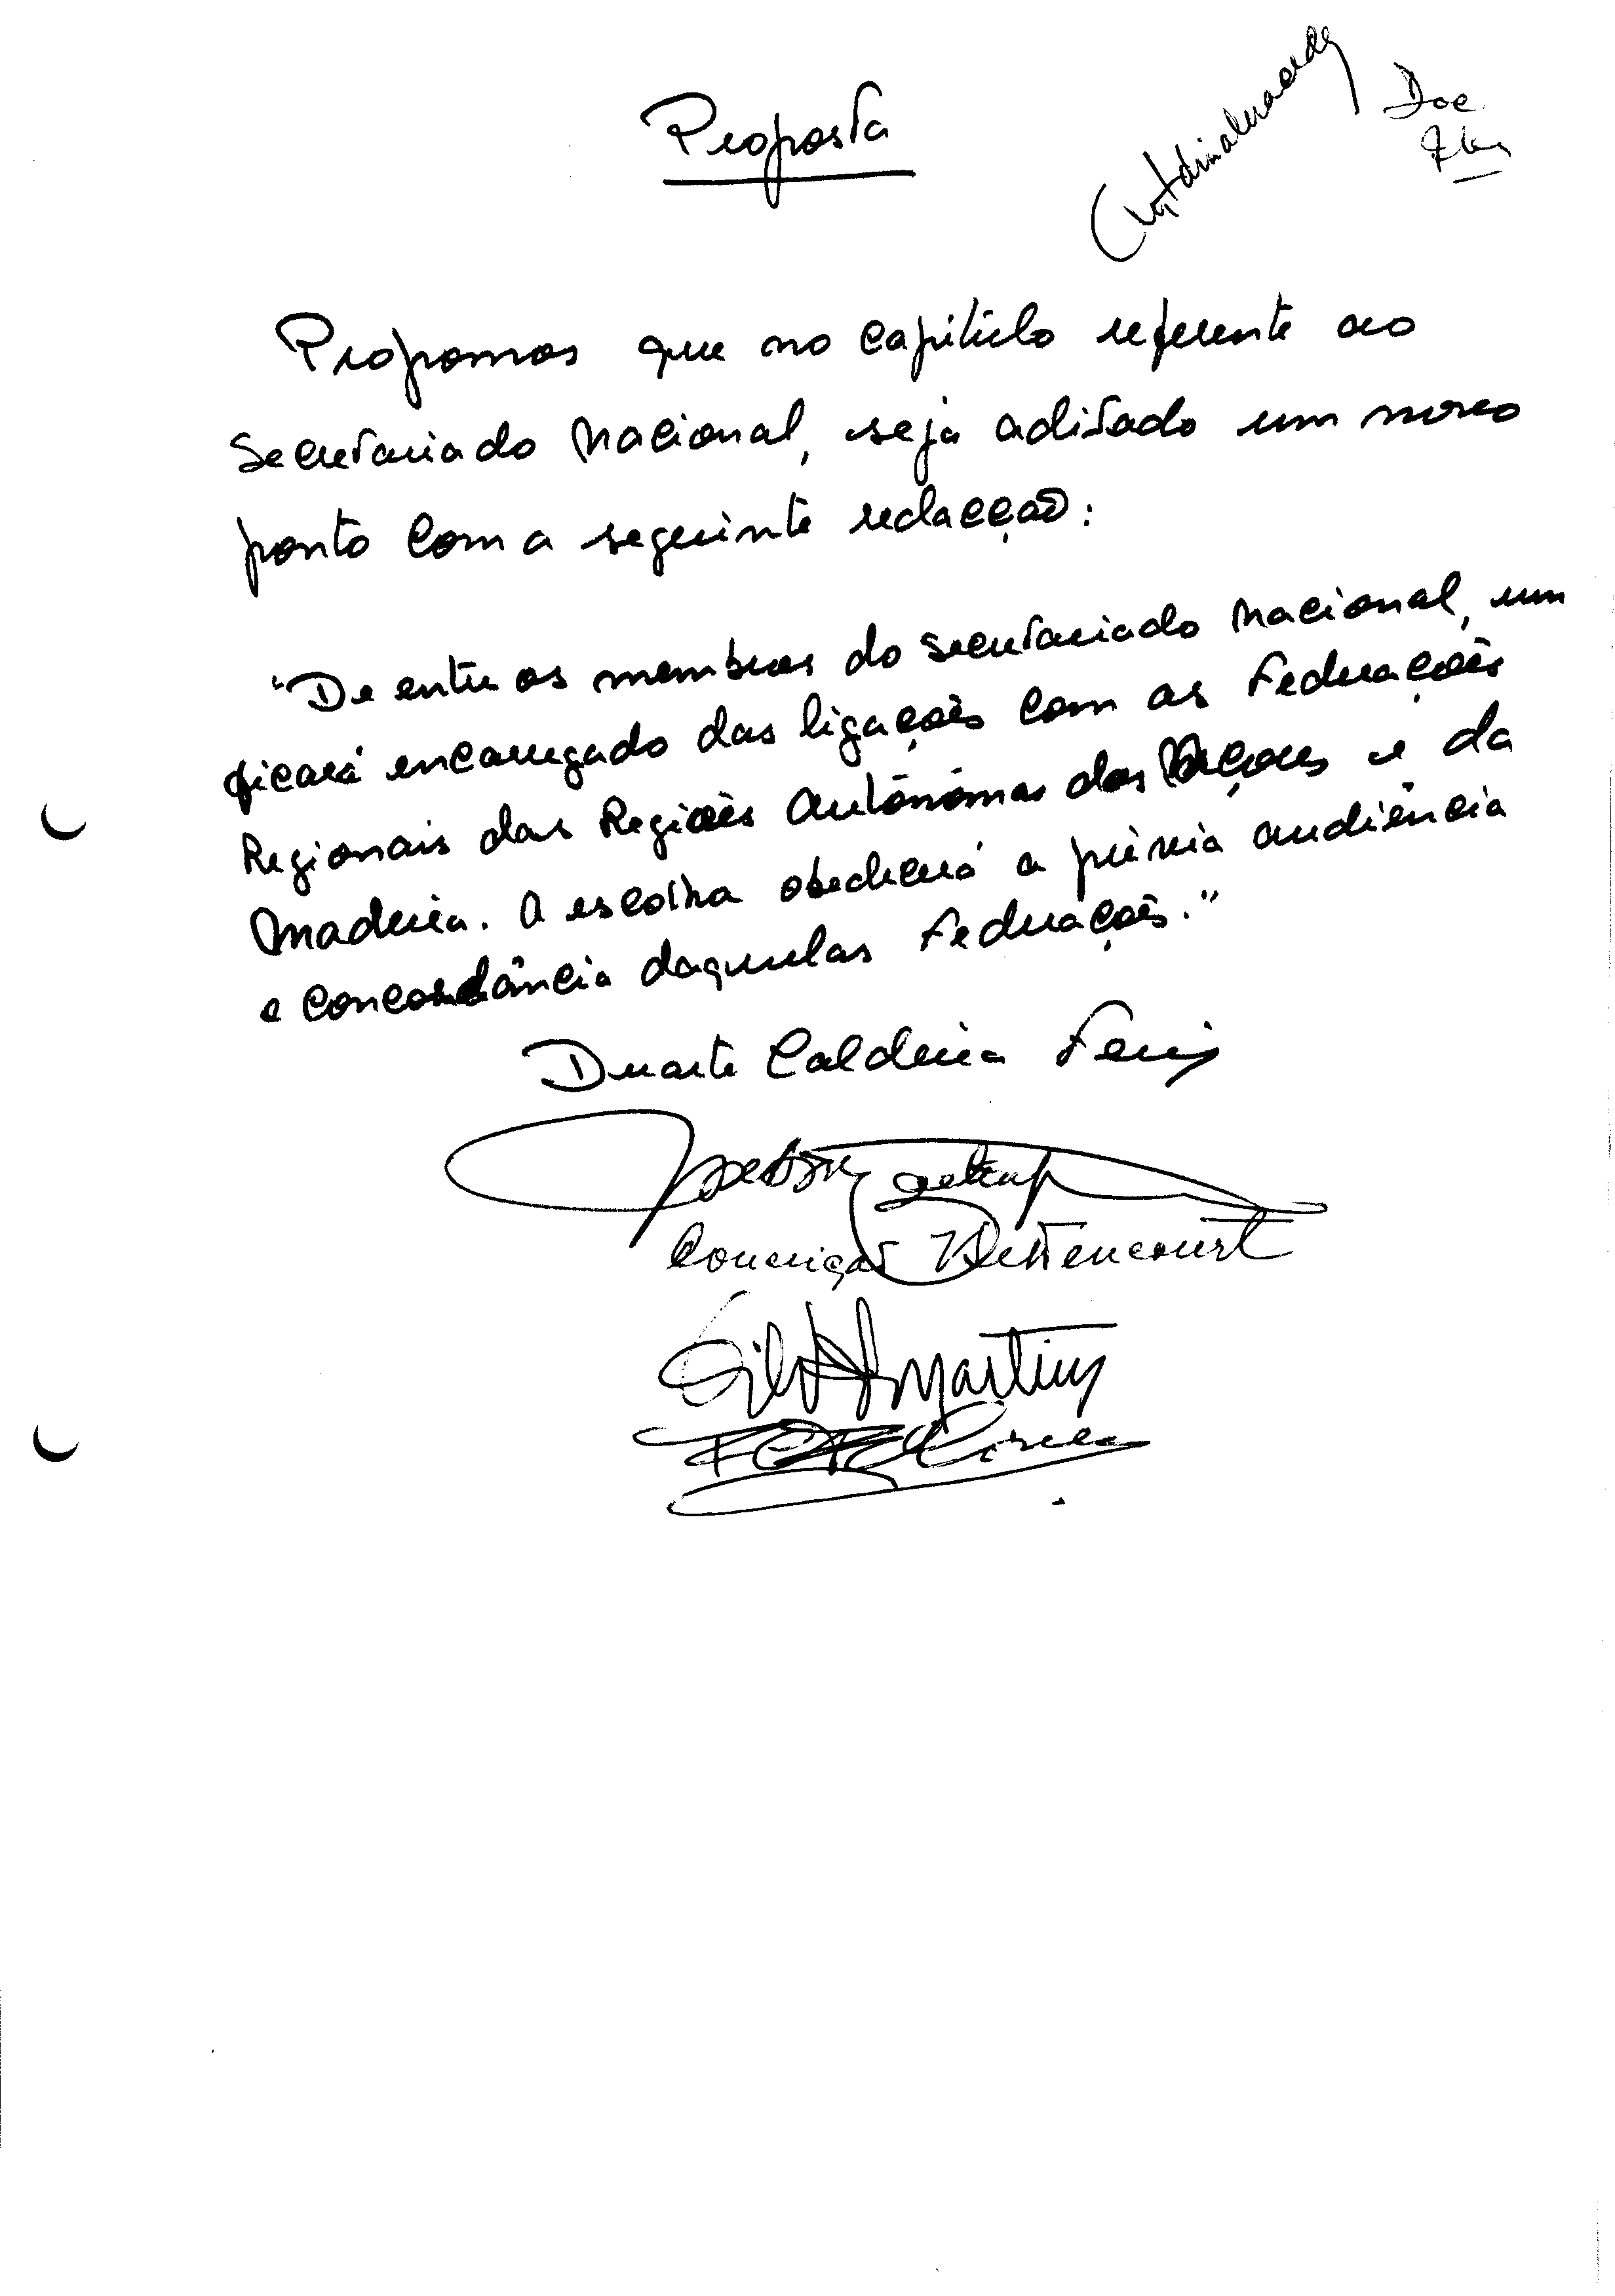 Proposta
Doc
Propomos que no capítulo referente ao
Secretariado Nacional, seja aditado um novo
ponto com a seguinte redacção:
"De entre os membros do Secretariado Nacional, um
ficará encarregado das ligações com as Federações
Regionais das Regiões Autónomas dos Açores e da
Madeira. A escolha obedecerá a prévia audiência
e concordância daquelas Federações."
Duarte Caldeira Ferr
Bettencourt
Martins